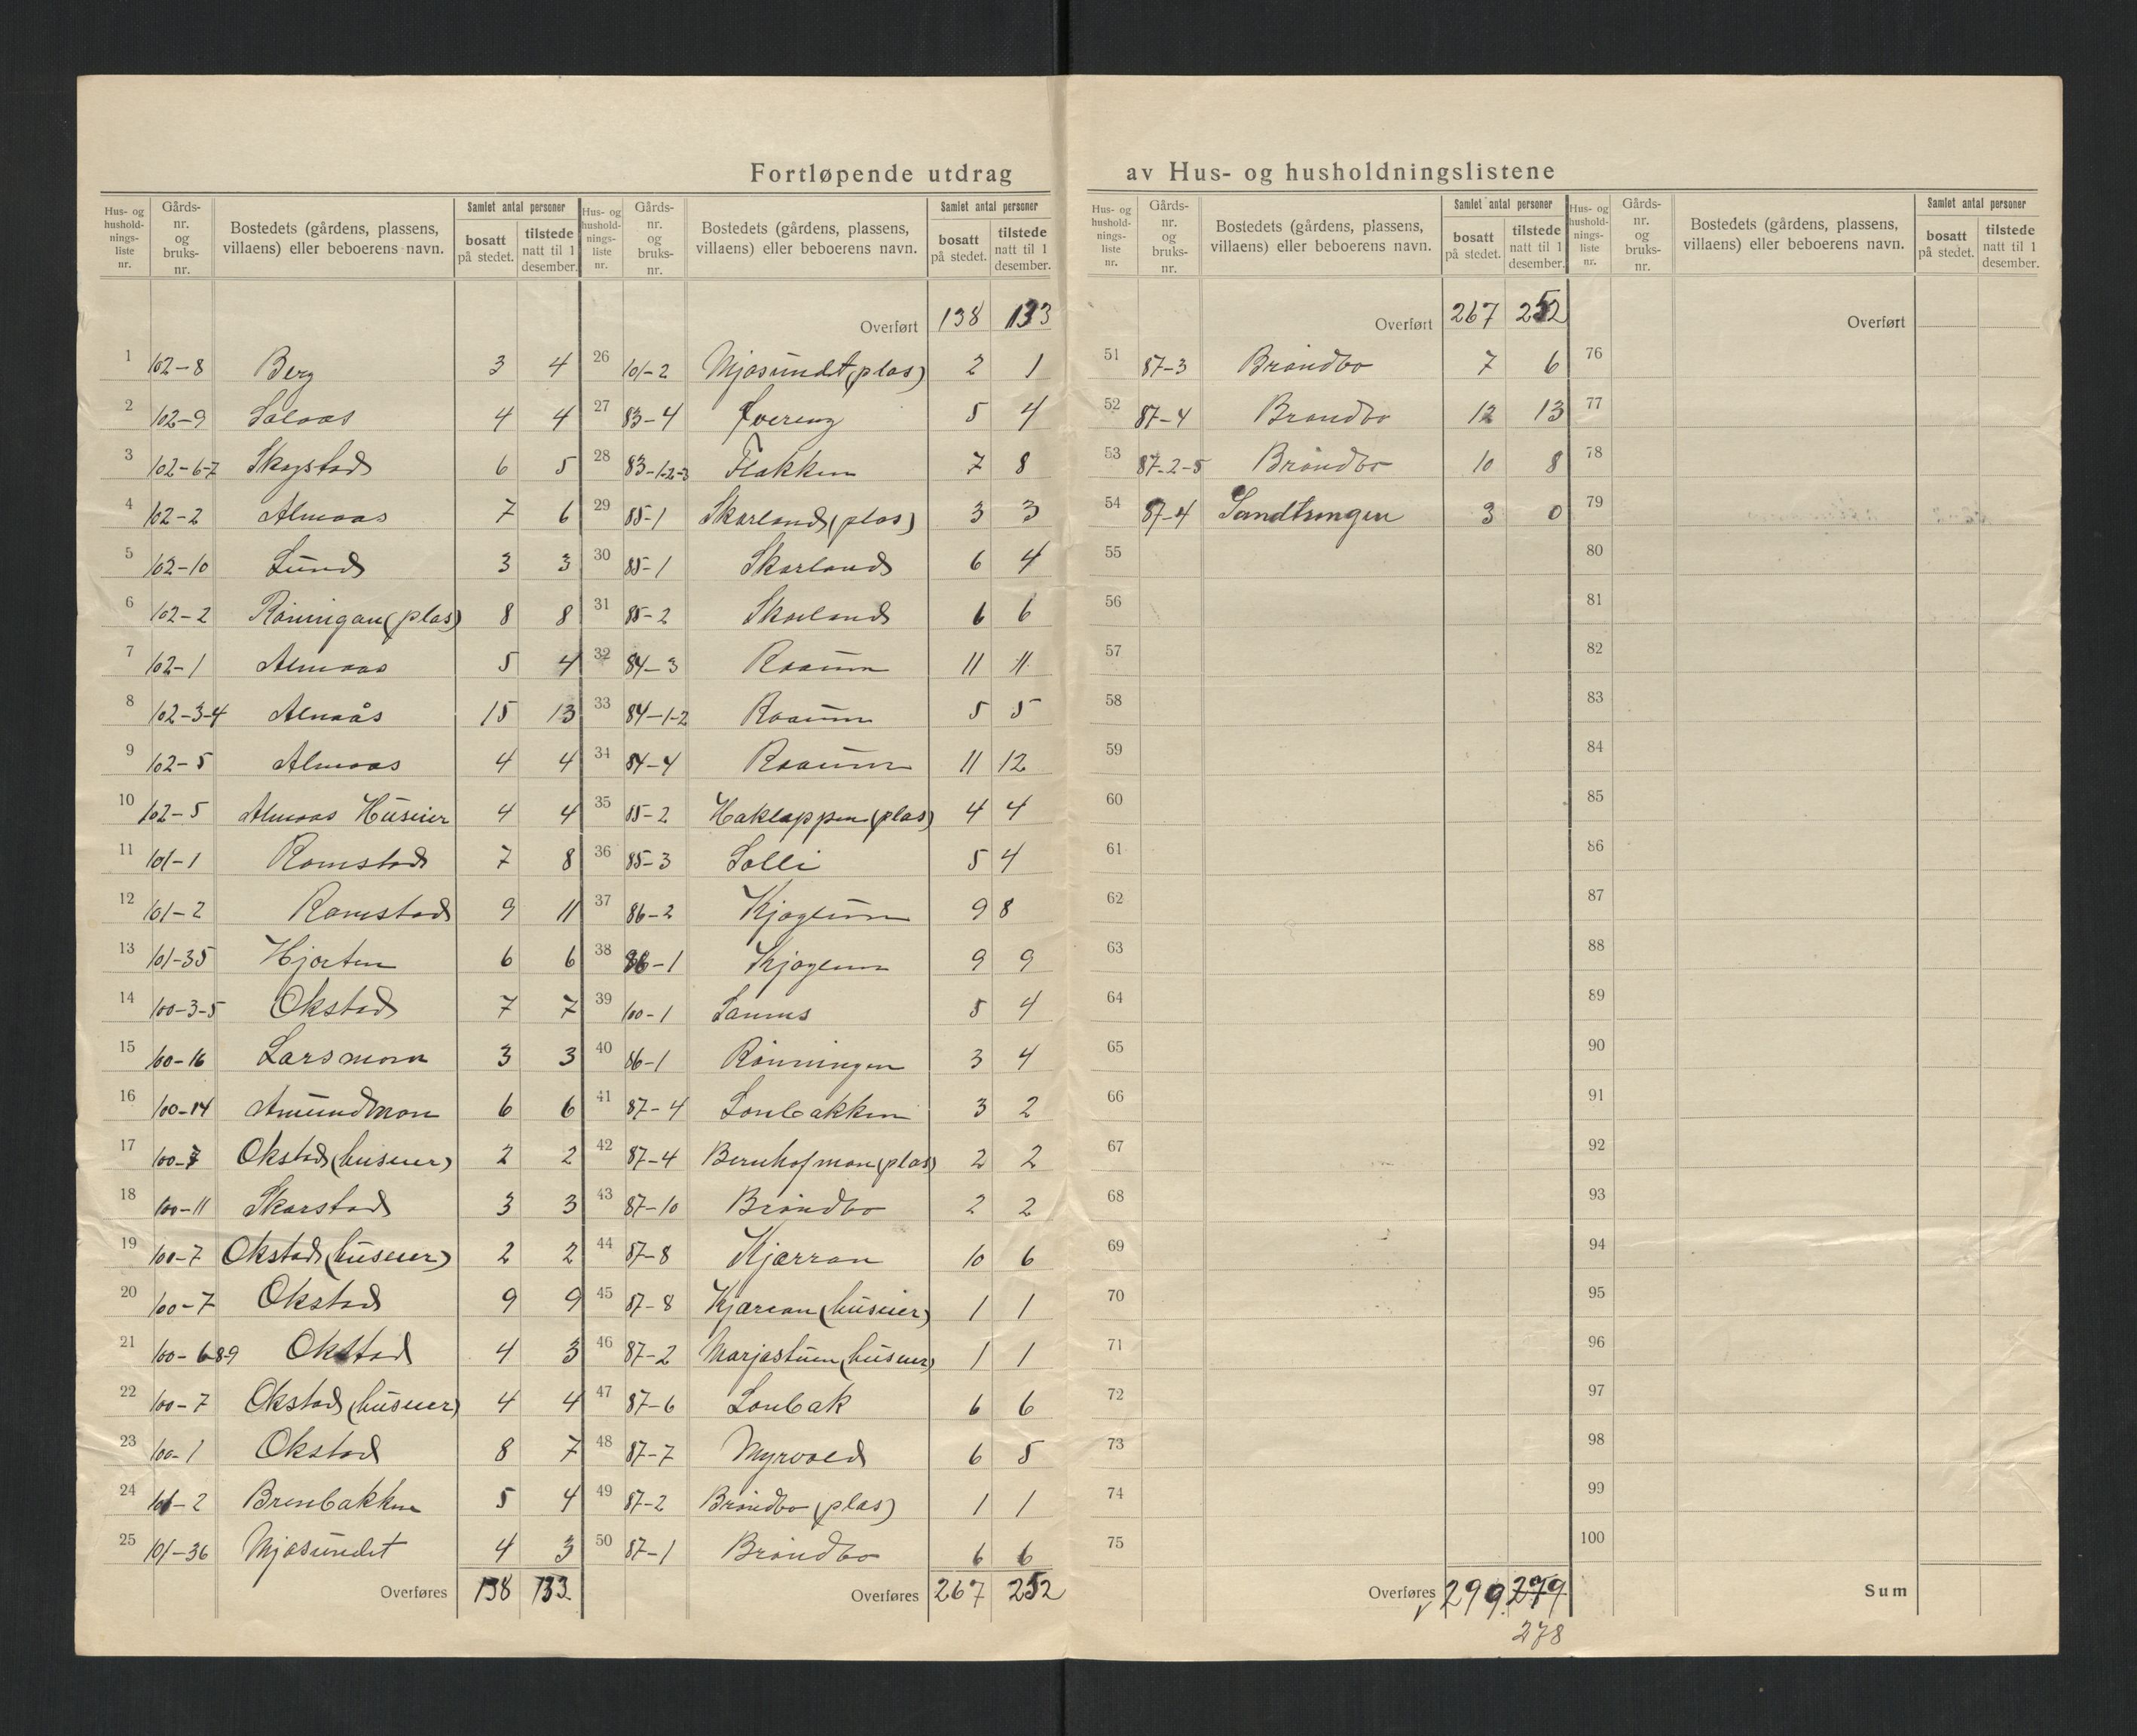 Fortløpende utdrag av Hus- og husholdningslistene
Hus- og hushold-nings-liste nr. | Gårds-nr. og bruks-nr. | Bostedets (gårdens, plassens, villaens) eller beboerens navn. | Samlet antal personer | bosatt på stedet. | tilstede natt til 1 desember.
1 102-8 Berg 3 4
2 102-9 Solaas 4 4
3 102-6-7 Skogstad 6 5
4 102-2 Almaas 7 6
5 102-10 Lund 3 3
6 102-2 Röningan (plas) 8 8
7 102-1 Almaas 5 4
8 102-3-4 Almaås 15 13
9 102-5 Almaas 4 4
10 102-5 Almaas Huseier 4 4
11 101-1 Romstad 7 8
12 101-2 Romstad 9 11
13 101-35 Hjorten 6 6
14 100-3-5 Okstad 7 7
15 100-16 Larsmon 3 3
16 100-14 Amundmon 6 6
17 100-7 Okstad (huseier) 2 2
18 100-11 Skarstad 3 3
19 100-7 Okstad (huseier) 2 2
20 100-7 Okstad 9 9
21 100-6-8-9 Okstad 4 3
22 100-7 Okstad (huseier) 4 4
23 100-1 Okstad 8 7
24 101-2 Brenbakken 5 4
25 101-36 Mjosundet 4 3
Overføres 138 133
Hus- og hushold-nings-liste nr. | Gårds-nr. og bruks-nr. | Bostedets (gårdens, plassens, villaens) eller beboerens navn. | Samlet antal personer | bosatt på stedet. | tilstede natt til 1 desember.
Overført 138 133
26 101-2 Mjosundet (plas) 2 1
27 83-4 5 4
28 83-1-2-3 Flakken 7 8
29 85-1 Skarland (plas) 3 3
30 85-1 Skarland 6 4
31 85-2 Skarland 6 6
32 84-3 Raaum 11 11
33 84-1-2 Raaum 5 5
34 84-4 Raaum 11 12
35 85-2 Haklappen (plas) 4 4
36 85-3 Solli 5 4
37 86-2 Kjoglum 9 8
38 86-1 9 9
39 100-1 5 4
40 86-1 Rönningen 3 4
41 87-4 Lonbakken 3 2
42 87-4 Bernhofmon (plas) 2 2
43 87-10 Bröndbo 2 2
44 87-8 Kjærran 10 6
45 87-8 Kjærran (huseier) 1 1
46 87-2 Marjastuen (huseier) 1 1
47 87-6 Lonbak 6 6
48 87-7 Myrvold 6 5
49 87-2 Bröndbo (plas) 1 1
50 87-1 Bröndbo 6 6
Overføres 267 252
Hus- og hushold-nings-liste nr. | Gårds-nr. og bruks-nr. | Bostedets (gårdens, plassens, villaens) eller beboerens navn. | Samlet antal personer | bosatt på stedet. | tilstede natt til 1 desember.
Overført 267 252
51 87-3 Bröndbo 7 6
52 87-4 Bröndbo 12 13
53 87-2-5 Bröndbo 10 8
54 87-4 3 0
55
56
57
58
59
60
61
62
63
64
65
66
67
68
69
70
71
72
73
74
75
Overføres 299 279
278
Hus- og hushold-nings-liste nr. | Gårds-nr. og bruks-nr. | Bostedets (gårdens, plassens, villaens) eller beboerens navn. | Samlet antal personer | bosatt på stedet. | tilstede natt til 1 desember.
Overført
76
77
78
79
80
81
82
83
84
85
86
87
88
89
90
91
92
93
94
95
96
97
98
99
100
Sum